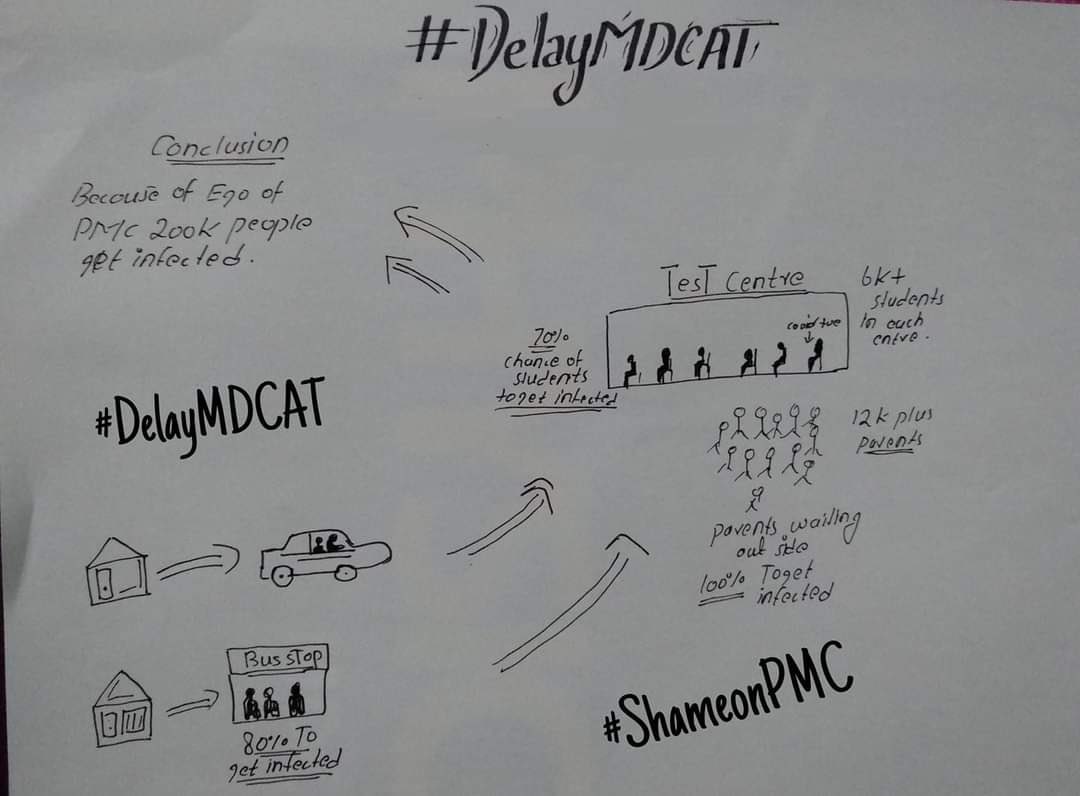 #DelayMDCAT
Conclusion
Becouse of Ego of
PMC 200k people
get infected.
Test Centre
covid +ve
6k+
students
In each
cntre.
70%
chance of
students
toget infected
#DelayMDCAT
12k plus
parents
parents waiting
out side
100% Toget
infected
Bus stop
80% To
get infected
#ShameonPMC